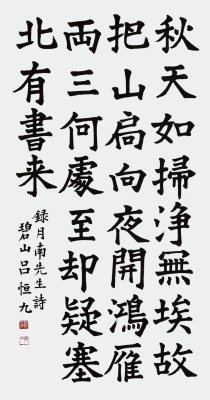 秋天如掃浄無埃故
把山扃向夜開鴻雁
両三何處至却疑塞
北有書来
録月南先生詩
碧山呂恒九